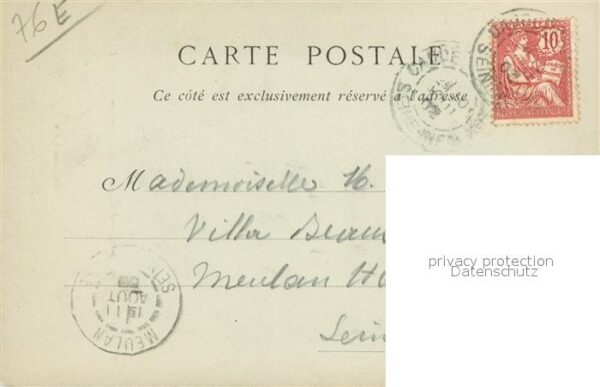 76E
CARTE POSTALE
Ce côté est exclusivement réservé à l'adresse
10
Mademoiselle H.
Villa Beau
Meulan
Sein
privacy protection
Datenschutz
MEULAN
SEIN
11
AOUT